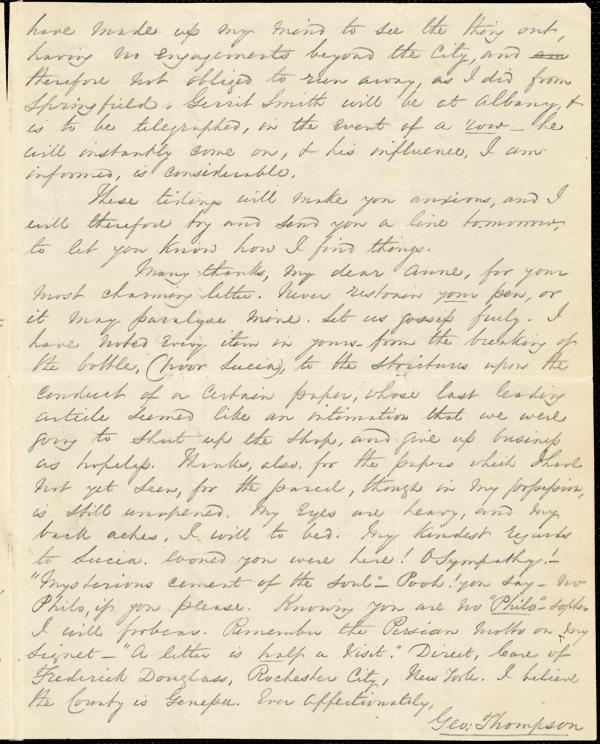 have made up my mind to see the thing out,
having no engagements beyond the City, and am
therefore not obliged to run away, as I did from
Springfield. Gerrit Smith will be at Albany, &
is to be telegraphed, in the event of a row – he
will instantly come on, & his influence, I am
informed, is considerable.
These tidings will make you anxious, and I
will therefore try and send you a line tomorrow,
to let you know how I find things.
Many thanks, my dear Anne, for your
most charming letter. Never restrain your pen, or
it may paralyse mine. Let us gossip freely. I
have noted every item in yours – from the breaking of
the bottle, (poor Lucia), to the strictures upon the
conduct of a certain paper, whose last leading
article seemed like an intimation that we were
going to shut up the shop, and give up business
as hopeless. Thanks, also, for the papers which I have
not yet seen, for the parcel, though in my possession,
is still unopened. My eyes are heavy, and my
back aches. I will to bed. My kindest regards
to Lucia. Would you were here! O Sympathy! –
"Mysterious cement of the soul" – Pooh! you say – no
Philo, if you please. Knowing you are no "Philo"-sopher
I will forbear. Remember the Persian motto on my
signet – "A letter is half a visit." Direct, Care of
Frederick Douglass, Rochester City, New York. I believe
the County is Genesee. Ever affectionately,
Geo: Thompson